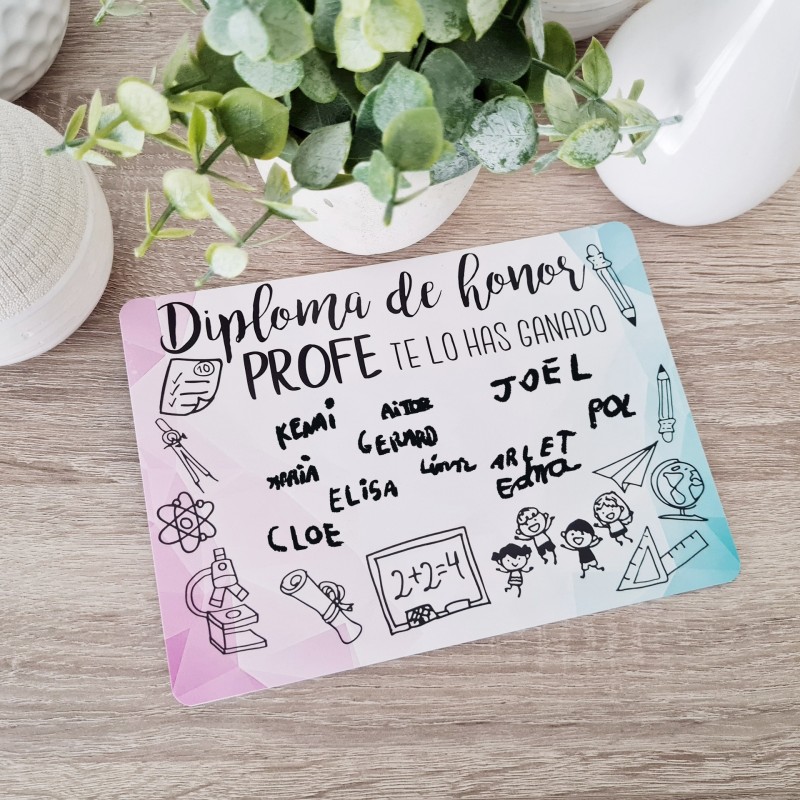 Diploma de honor
PROFE TE LO HAS GANADO
10
JOEL
KEMI AiTOR
POL
GERARD
ARLET
Edna
ELISA
CLOE
2+2=4